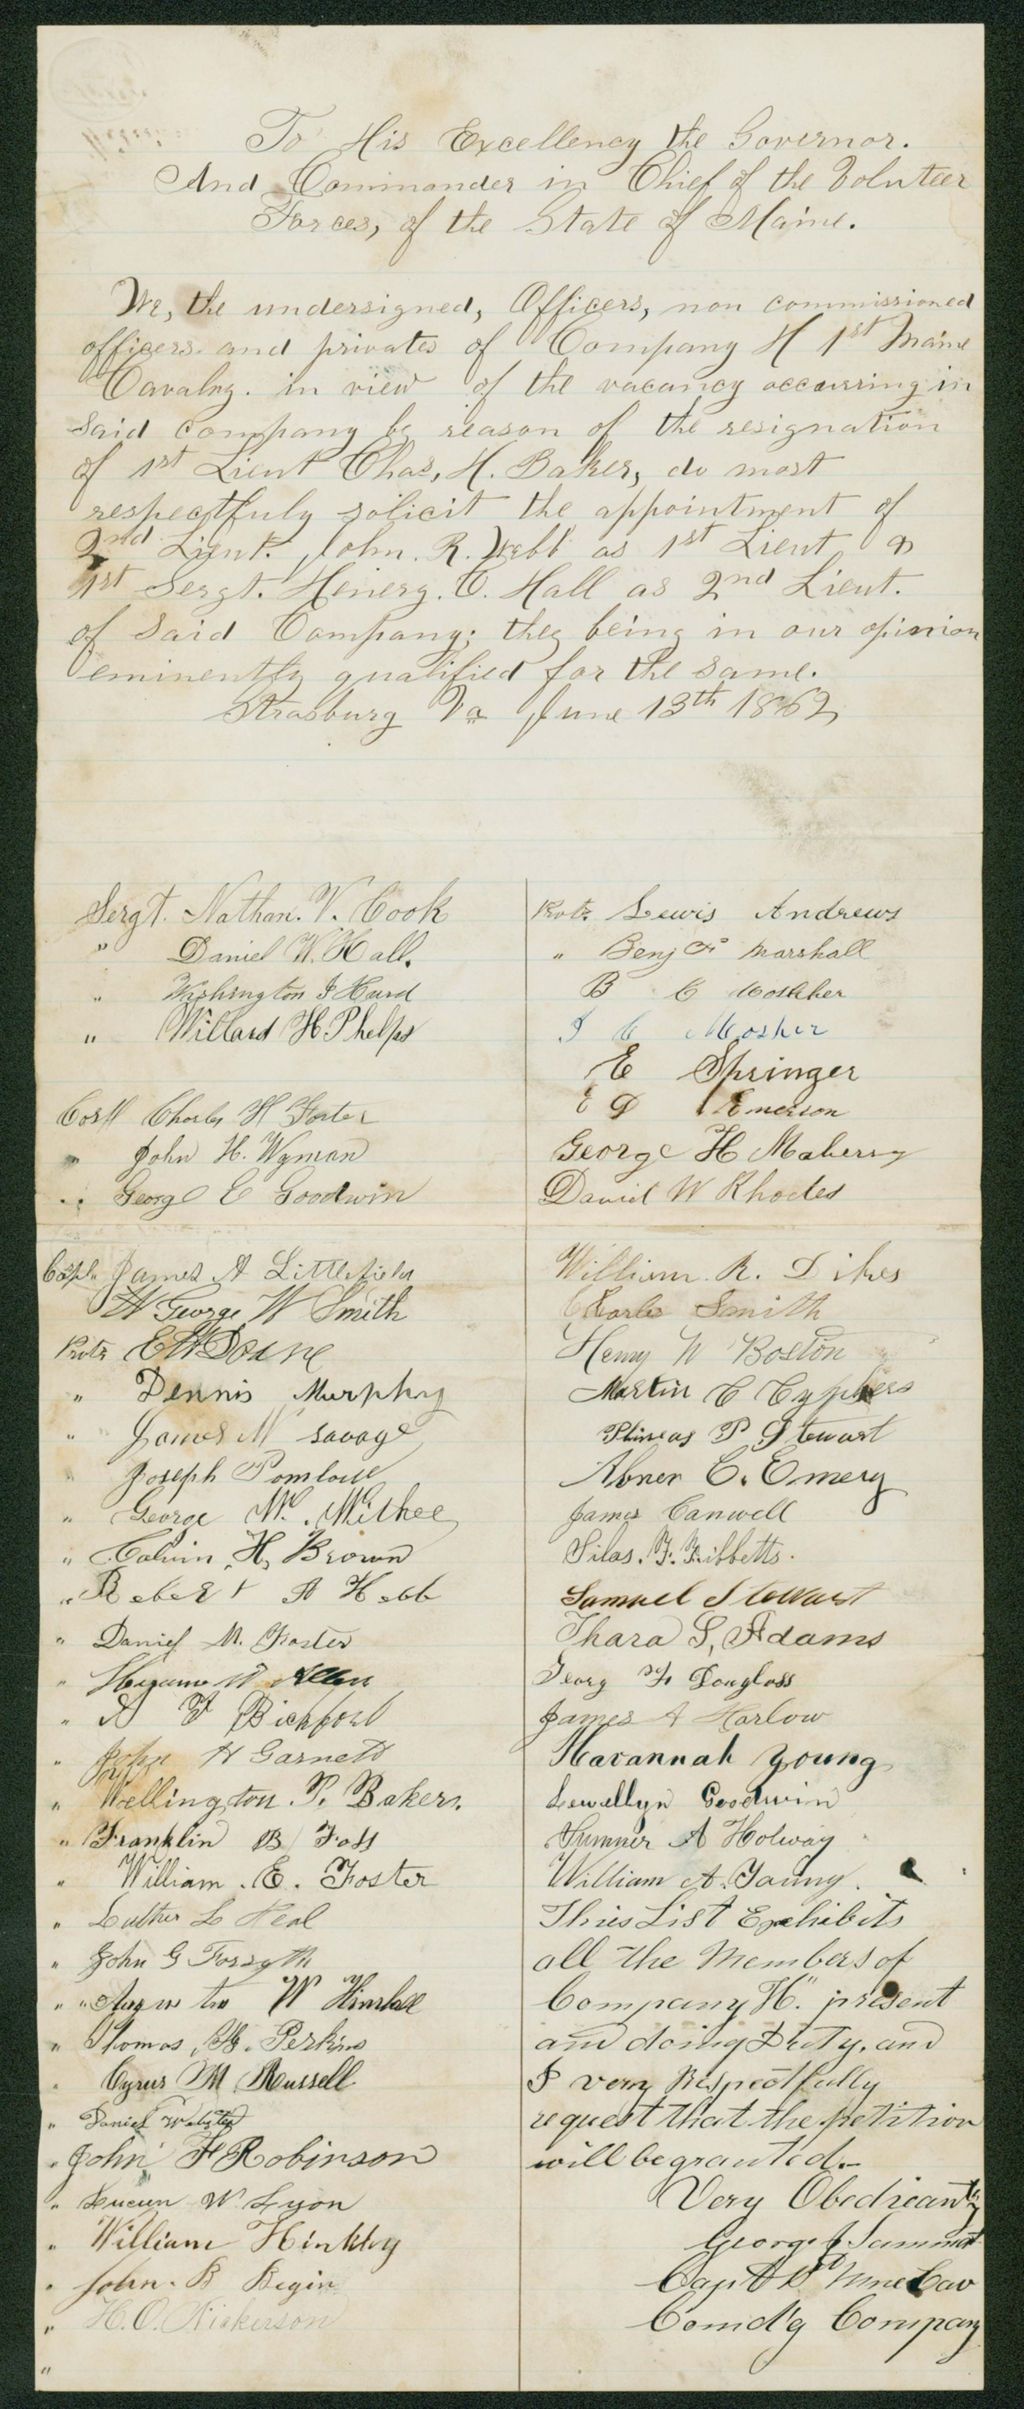 To His Excellency the Governor.
And Commander in Chief of the Volnteer
Forces, of the State of Maine.
We, the undersigned, Officers, non commissioned
officers and privates of Company H 1st Maine
Cavalry. in view of the vacancy occurring in
said company by reason of the resignation
of 1st Lieut Chas, H. Baker, do most
respectfuly solicit the appointment of
2nd Lieut. John. R. Webb as 1st Lieut &
1st Sergt. Henery. C. Hall as 2nd Lieut.
of said Company; they being in our opinion
eminently qualified for the same.
Strasburg Va June 13th 1862
Sergt. Nathan. V. Cook
" Daniel W. Hall.
" Washington I Hurd
" Willard H Phelps
Corpl Charles H Foster
" John H. Wyman
" George E Goodwin
Corpl. James A Littlefield
George W Smith
Privts E W Doane
" Dennis Murphy
" James W savage
" Joseph
" George W. Mc.Kithee
" Calvin H. Brown
" Robert A Webb
" Daniel M. Foster
" W Allen
" A F Bickford
" John H Garnett
" Wellington. P. Baker.
" Franklin B Foss
" William. E. Foster
" Luther L Neal
" John G Forsyth
" W
" Thomas B. Perkins
" Cyrus M Russell
" Daniel Webster
" John F Robinson
" Lucien W Lyon
" William Hinkley
" John. B Begin
" H. O. Nickerson
"
Privts. Lewis Andrews
" Benj F Marshall
B C
I C Mosher
E Springer
E D Emerson
George H Maberry
David W Rhodes
William. R. Dikes
Charles Smith
Henry W Boston
Martin C Cyphers
Phineas P Stewart
Abner C. Emery
James Canwell
Silas. F. Tibbetts.
Samuel Stewart
Thara S, Adams
Georg F Douglass
James A Harlow
Havannah Young
Lewellyn Goodwin
Sumner A Holway
William A. Young.
This List Exhibits
all the Members of
Company "H." present
and doing Duty, and
I very Respectfully
request that the petition
will be granted.
Very Obedieantly
George J Summat
Capt 1st Mne Cav
Comd'g Company